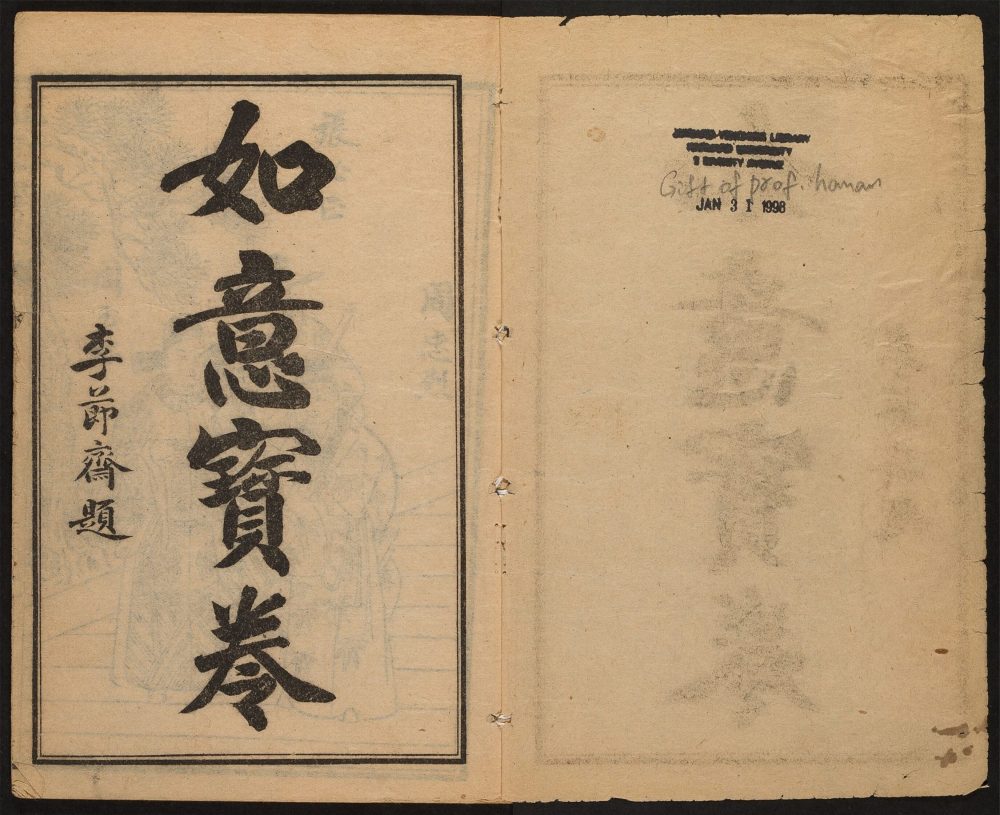 如意寶卷
李節齋題
HARVARD-YENCHING LIBRARY
HARVARD UNIVERSITY
2 DIVINITY AVENUE
Gift of prof. hanan
JAN 31 1998